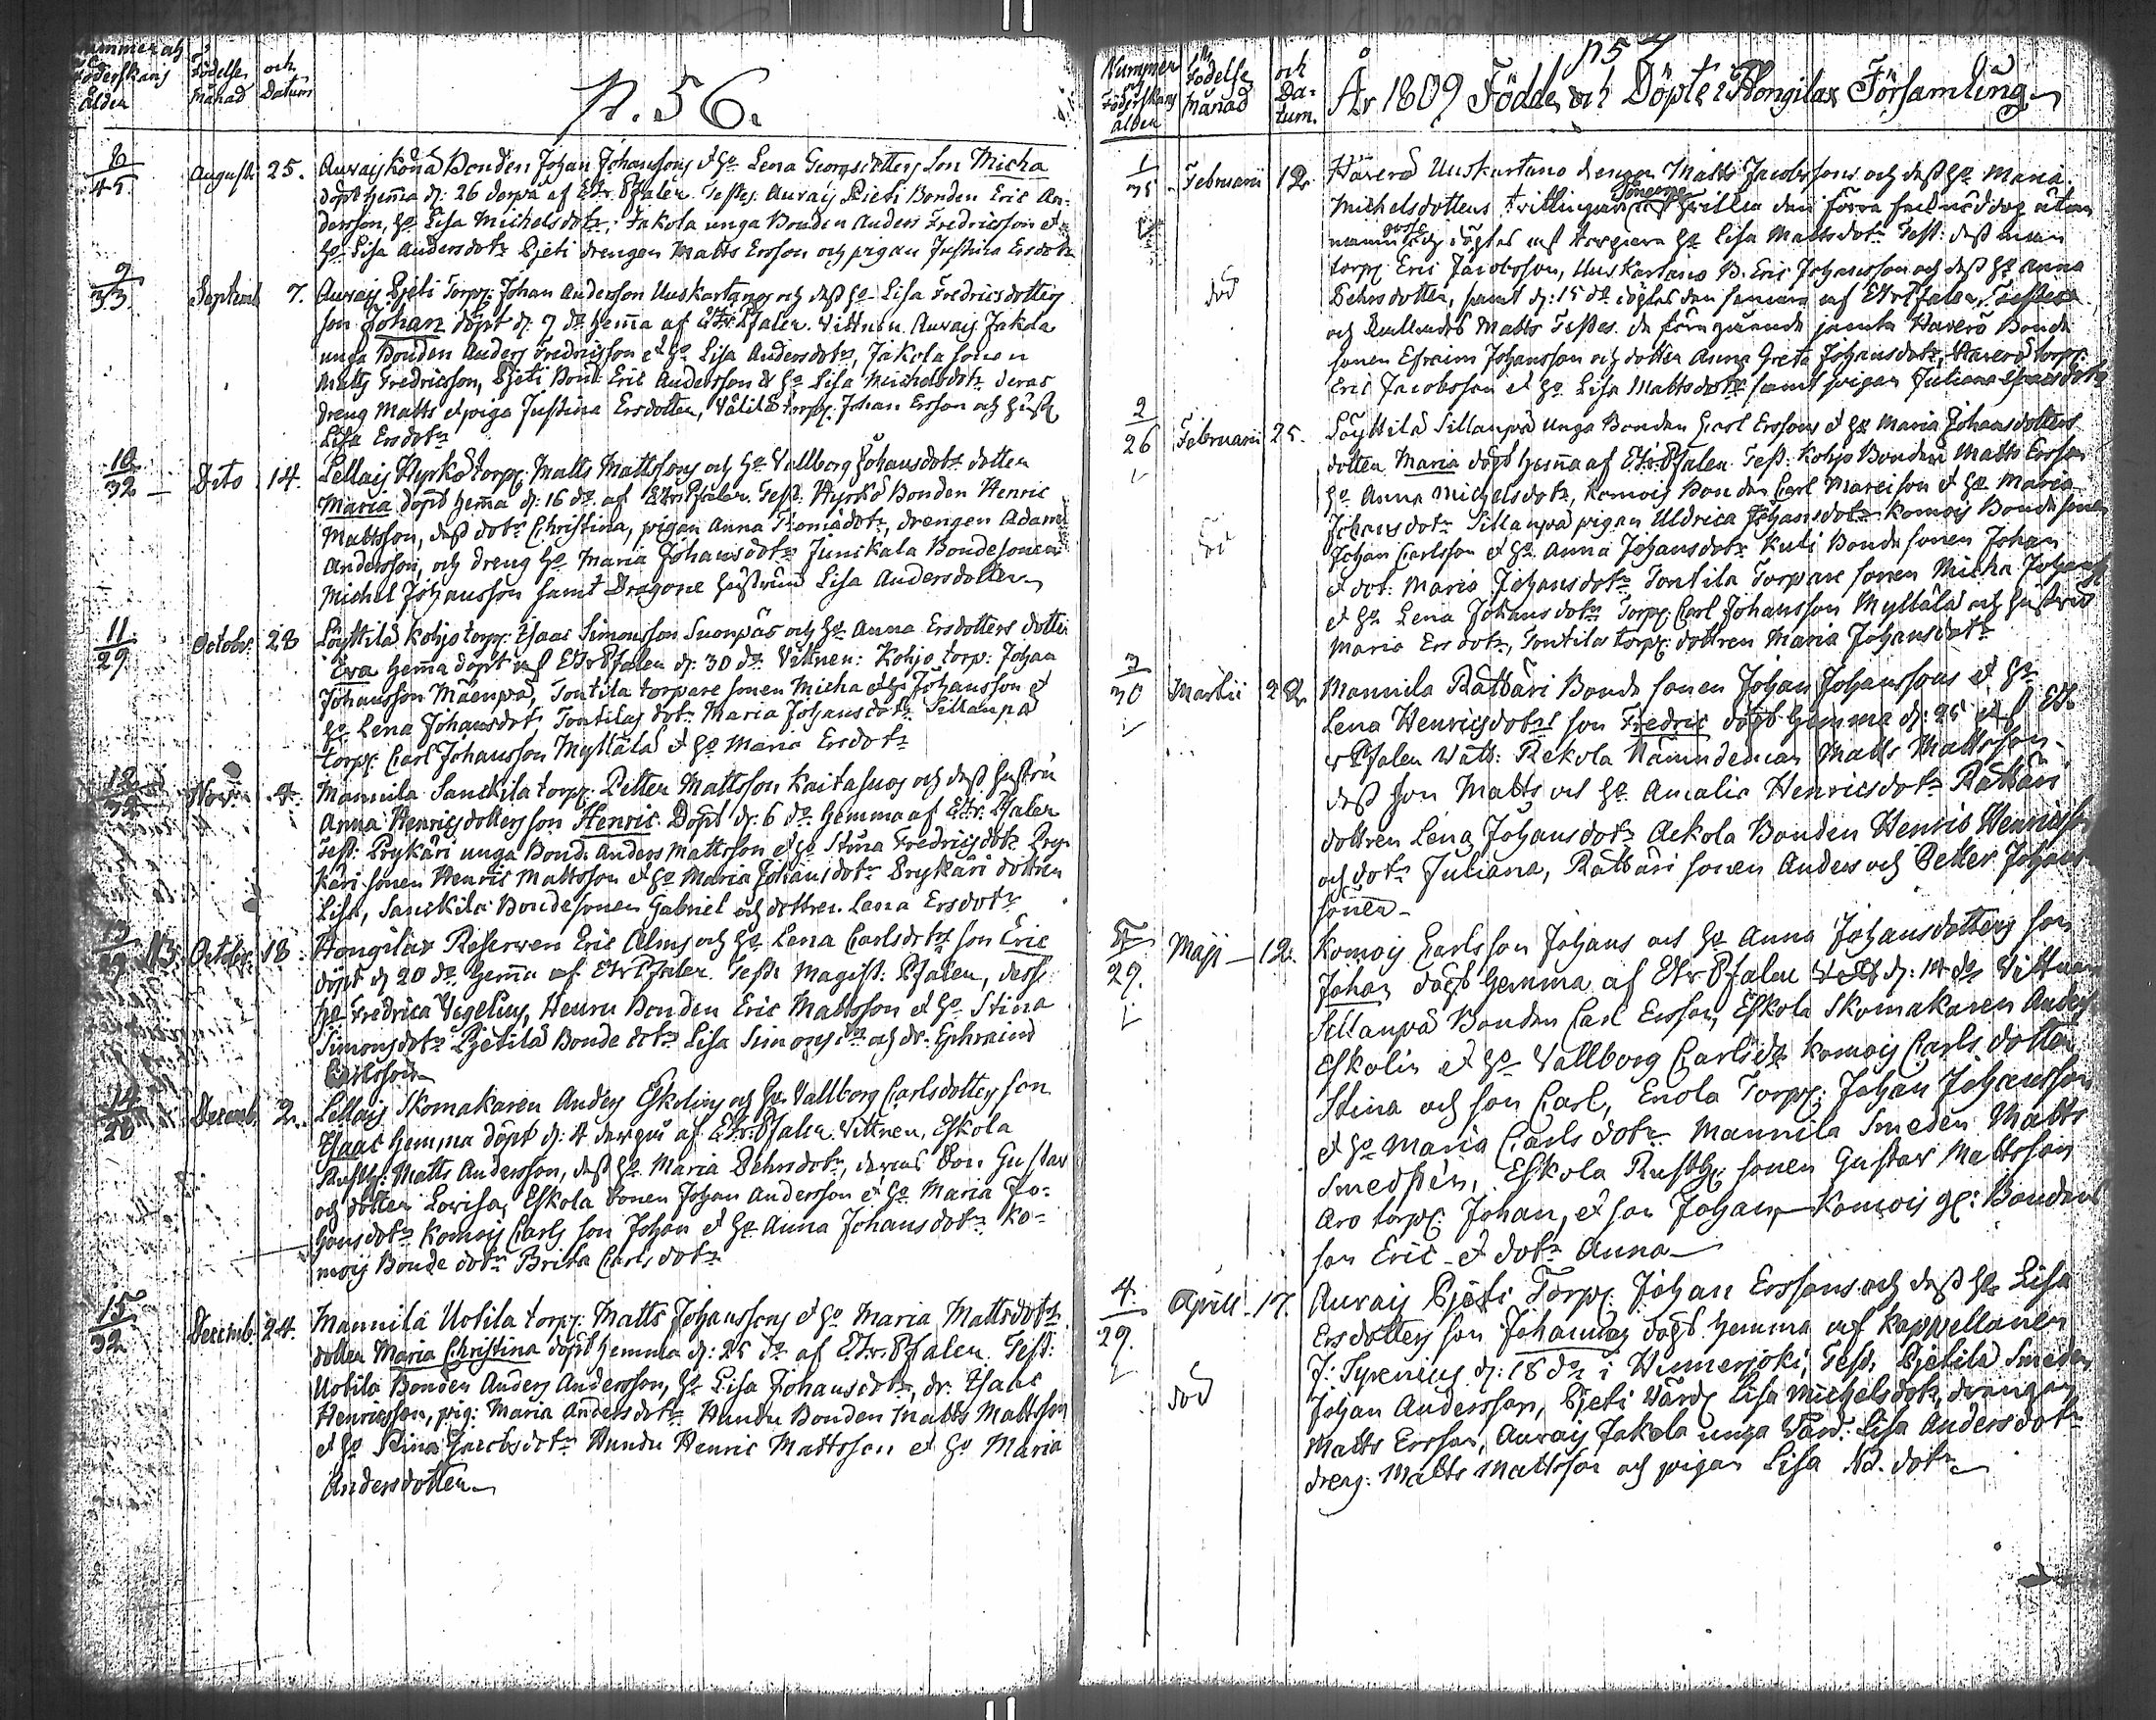 Nummer och
Föderskans
ålder
Födelse
månad
och
Datum
p. 56.
8
45.
Augusti 25. Auvais Bonden Johan Johanssons et ho Lena Georgsdotters son Micha
döpt hema d: 26 derpå af Ehr Pfaler. Testes: Auvais Pieti Bonden Eric An-
dersson, ho Lisa Michelsdotr, Jakola unga Bonden Anders Fredricsson et
ho Lisa Andersdotr Pjeti drengen Matts Ersson och pigan Justina Ersdotr
9
33.
Septemb. 7. Auvais Pjeti Torp: Johan Andersson Uuskartanos och dess ho Lisa Fredricsdotters
son Johan döpt d: 9 do hema af Ehr Pfaler. Vittnen. Auvais Jakola
unga Bonden Anders Fredricsson et ho Lisa Andersdotr, Jakola sonen
Matts Fredricsson, Pjeti Bond: Eric Andersson et ho Lisa Michelsdotr deras
dreng Matts et piga Justina Ersdotter, Välilä torp: Johan Ersson och hust:
Lisa Ersdotr
10
32
Dito 14. Lellais Hyrkö torp: Matts Mattssons och ho Vallborg Johansdotr dotter
Maria döpt hema d: 16 do af Ehr Pfaler. Test: Hyrkö Bonden Henric
Mattsson, dess dotr Christina, pigan Anna Thomædotr, drengen Adam
Andersson, och dreng ho Maria Johansdotr Junikala Bondesonen
Michel Johansson samt Dragone hustrun Lisa Andersdotter
11
29
Octobr. 28 Löyttilä Kohjo torp: Isaac Simonsson Suonpäs och ho Anna Ersdotters dotter
Eva hema döpt af Ehr Pfaler d: 30 do. Vittnen: Kohjo torp: Johan
Johansson Mäenpää, Tontila torpare sonen Micha Johansson et
ho Lena Johansdotr Tontilas dotr Maria Johansdotr Sillanpä
torp: Carl Johansson Myllälä et ho Maria Ersdotr
12
32
Nov: 4. Mannila Sanckila torp: Petter Mattsson Kaitasuos och dess hustru
Anna Henricsdotters son Henric. Döpt d: 6 do. hemma af Ehr. Pfaler
Test: Prykäri unga Bond. Anders Mattsson et ho Stina Fredricsdotr Pry-
käri sonen Henric Mattsson et ho Maria Johansdotr Prykäri dottren
Lisa, Sanckila Bondesonen Gabriel och dottren Lena Ersdotr
13
29
Octobr. 18. Hongilax Reserven Eric Alms och ho Lena Carlsdotrs son Eric
döpt d 20 do hema af Ehr Pfaler. Test: Magist: Pfaler, dess
ho Fredrica Vegelius, Heuru Bonden Eric Mattsson et ho Stina
Simonsdotr Pjetilä Bonde dotr Lisa Simonsdr och dr: Ephraim
Carlsson
14
28
Decemb. 2. Lellais Skomakaren Anders Eskolins och ho Vallborg Carlsdotters son
Isaac hemma döpt d: 4 derpå af Ehr: Pfaler. Vittnen, Eskola
Rusth: Matts Andersson, dess ho Maria Pehrsdotr, deras son Gustav
och dotter Lovisa, Eskola sonen Johan Andersson et ho Maria Jo-
hansdotr Komois Carls son Johan et ho Anna Johansdotr Ko-
mois Bonde dotr Brita Carlsdotr
15
32
Decemb. 24. Mannila Uotila torp: Matts Johanssons et ho Maria Mattsdotrs
dotter Maria Christina döpt hemma d: 25 do af Ehr. Pfaler. Test:
Uotila Bonden Anders Andersson, ho Lisa Johansdotr, dr: Isaac
Henricsson, pig: Maria Andersdotr Hundu Bonden Matts Mattsson
et ho Stina Jacobsdotr Hundu Henric Mattsson et ho Maria
Andersdotter
p 57
Nummer
och
Föderskans
ålder
Födelse
månad
och
Da-
tum.
År 1809 Födde, och Döpte i Hongilax Församling
1
35
Februarii 12. Häverö Uuskartano drengen Matts Jacobssons och dess ho Maria
Michelsdotters tvillingar sönerne den förra fad nöddop utan
namn och döptes af torpare ho Lisa Mattsdotr Test: dess man
torp: Eric Jacobsson, Uuskartano B. Eric Johansson och dess ho Anna
död
Pehrsdotter, samt d: 15 do döptes den senare af Ehr Pfaler,
och kallades Matts Testes. de föregående jemte Haverö Bonde
sonen Efraim Johansson och dotter Anna Greta Johansdotr, Haverö torp:
Eric Jacobsson et ho Lisa Mattsdotr samt pigan Juliana
2
26
Februarii 25. Löyttilä Sillanpä unga Bonden Carl Erssons et ho Maria Johansdotters
dotter Maria döpt hema af Ehr Pfaler Test: Kohjo Bonden Matts Ersson
ho Anna Michelsdotr, Komois Bonden Carl Marcison et ho Maria
Johansdotr Sillanpä pigan Uldrica Johansdotr Komois Bonde sonen
död
Johan Carlsson et ho Anna Johansdotr Kuti Bonde sonen Johan
et dot: Maria Johansdotr Tontila Torpare sonen Micha Johans
et ho Lena Johansdotr Torp: Carl Johansson Myllälä och hustru
Maria Ersdotr, Tontila torp: dottren Maria Johansdotr
3
30
Martii 22 Mannila Rättäri Bonde sonen Johan Johanssons et ho
Lena Henricsdotrs son Fredric döpt hemma d: 25 af Eh-
r Pfaler Vitt: Rekola Nämndeman Matts Mattsson
dess son Matts och ho Amalia Henricsdotr Rättäri
dottren Lena Johansdotr Aekola Bonden Henric Henricsson
och dotr Juliana, Rättäri sonen Anders och Petter Johans
söner
5
29.
Maji 12. Komois Carlsson Johans och ho Anna Johansdotters son
Johan döpt hemma af Ehr Pfaler d: 14 do Vittnen
Sillanpä Bonden Carl Ersson, Eskola Skomakaren Anders
Eskolin et ho Vallborg Carlsdr Komois Carls dotter
Stina och son Carl, Enola Torp: Johan Johansson
et ho Maria Carlsdotr Mannila Smeden Matts
Smedsten, Eskola Rusth: sonen Gustav Mattsson
Aro torp: Johan, et son Johan, Komois gl: Bondens
son Eric et dotr Anna
4.
29.
Aprill 17. Auvais Pjeti Torp: Johan Erssons och dess ho Lisa
Ersdotters son Johannes döpt hemma af Kappellanen
J: Syrenius d: 18 do i Hinnerjoki, Test, Pjetilä Smeden
död
Johan Andersson, Pjeti Värd: Lisa Michelsdotr, drengen
Matts Ersson, Auvais Jakola unga Värd: Lisa Andersdotr
dreng: Matts Mattsson och pigan Lisa dotr